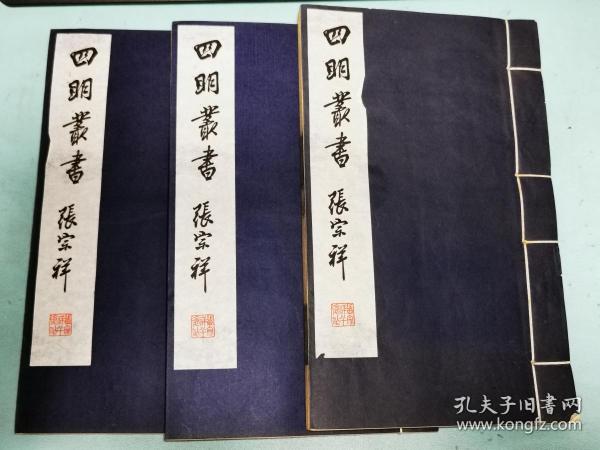 四明叢書 張宗祥
四明叢書 張宗祥
四明叢書 張宗祥
孔夫子旧書网
www.kongfz.com